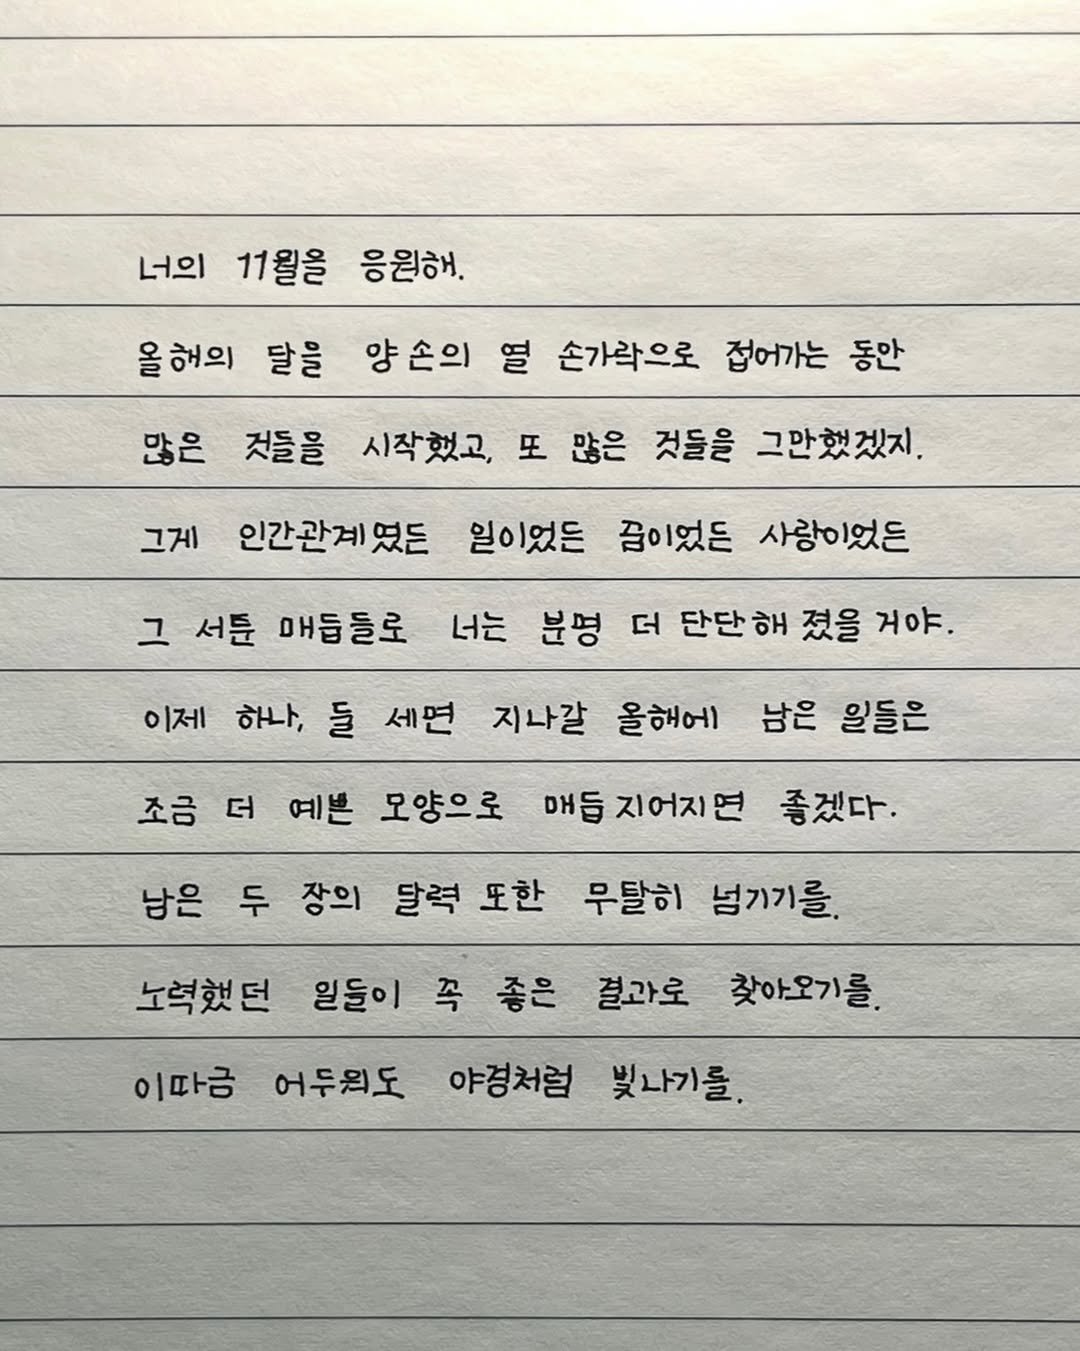 너의 11월을 응원해.
올해의 달을 양손의 열 손가락으로 접어가는 동안
많은 것들을 시작했고, 또 많은 것들을 그만했겠지.
그게 인간관계였든 일이었든 꿈이었든 사랑이었든
그 서툰 매듭들로 너는 분명 더 단단해졌을 거야.
이제 하나, 둘 세면 지나갈 올해에 남은 일들은
조금 더 예쁜 모양으로 매듭지어지면 좋겠다.
남은 두 장의 달력 또한 무탈히 넘기기를.
노력했던 일들이 꼭 좋은 결과로 찾아오기를.
이따금 어두워도 야경처럼 빛나기를.